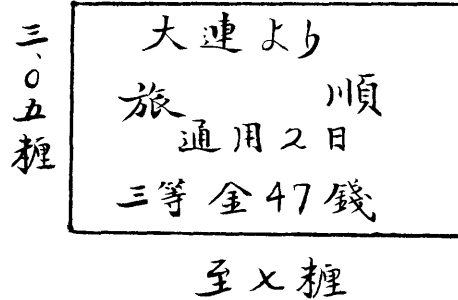 三、〇五糎
大連より
旅 順
通用2日
三等 金47錢
至七糎